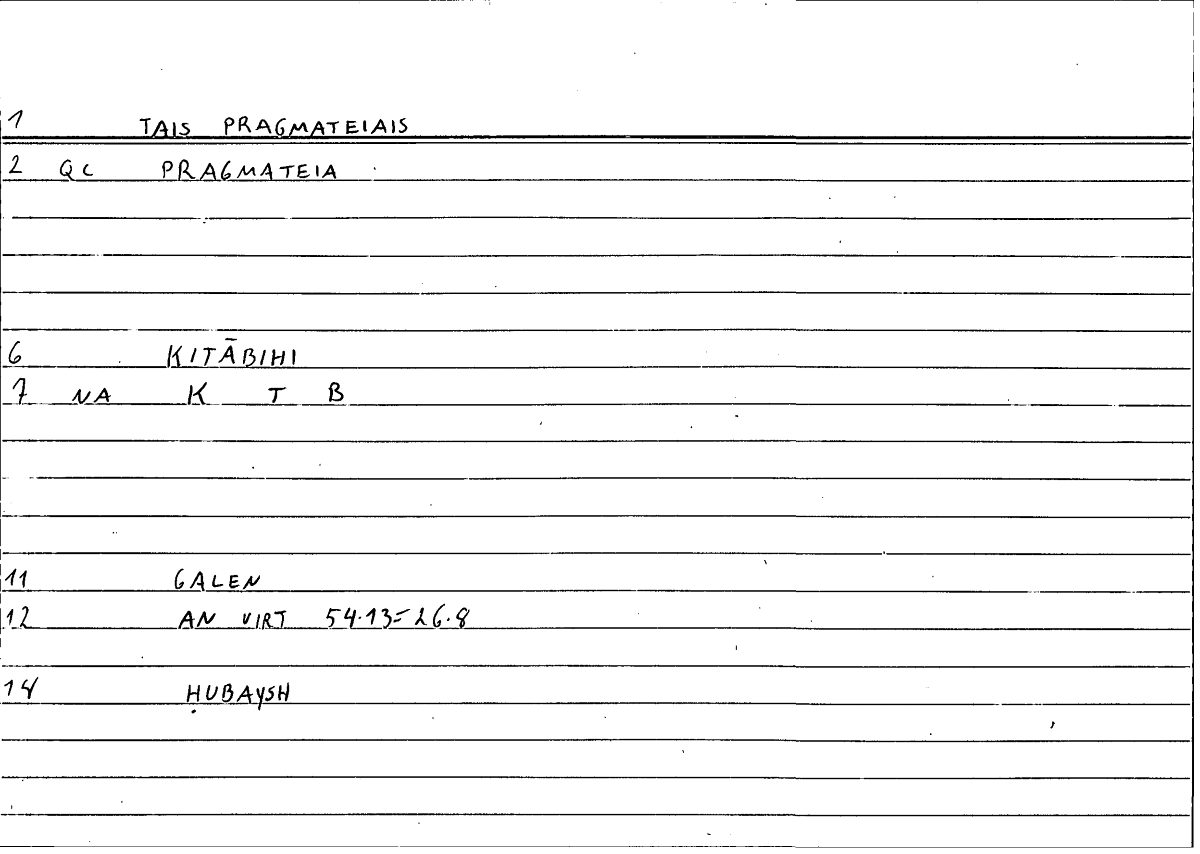 1 TAIS PRAGMATEIAIS
2 QC PRAGMATEIA
6 KITĀBIHI
7 NA K T B
11 GALEN
12 AN VIRT 54.13=26.8
14 ḤUBAYSH